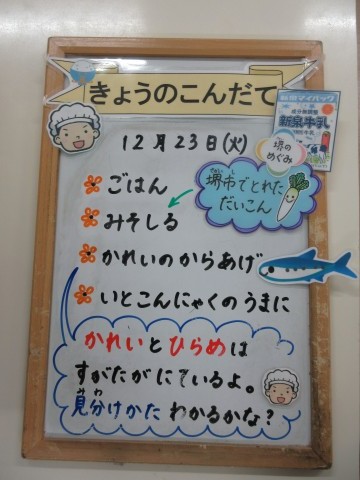 きょうのこんだて
12月23日(火)
新泉マイパック
成分無調整
新泉牛乳
堺の
めぐみ
ごはん
みそしる
堺市でとれた
だいこん
かれいのからあげ
いとこんにゃくのうまに
かれいとひらめは
すがたがにているよ。
見分けかたわかるかな?